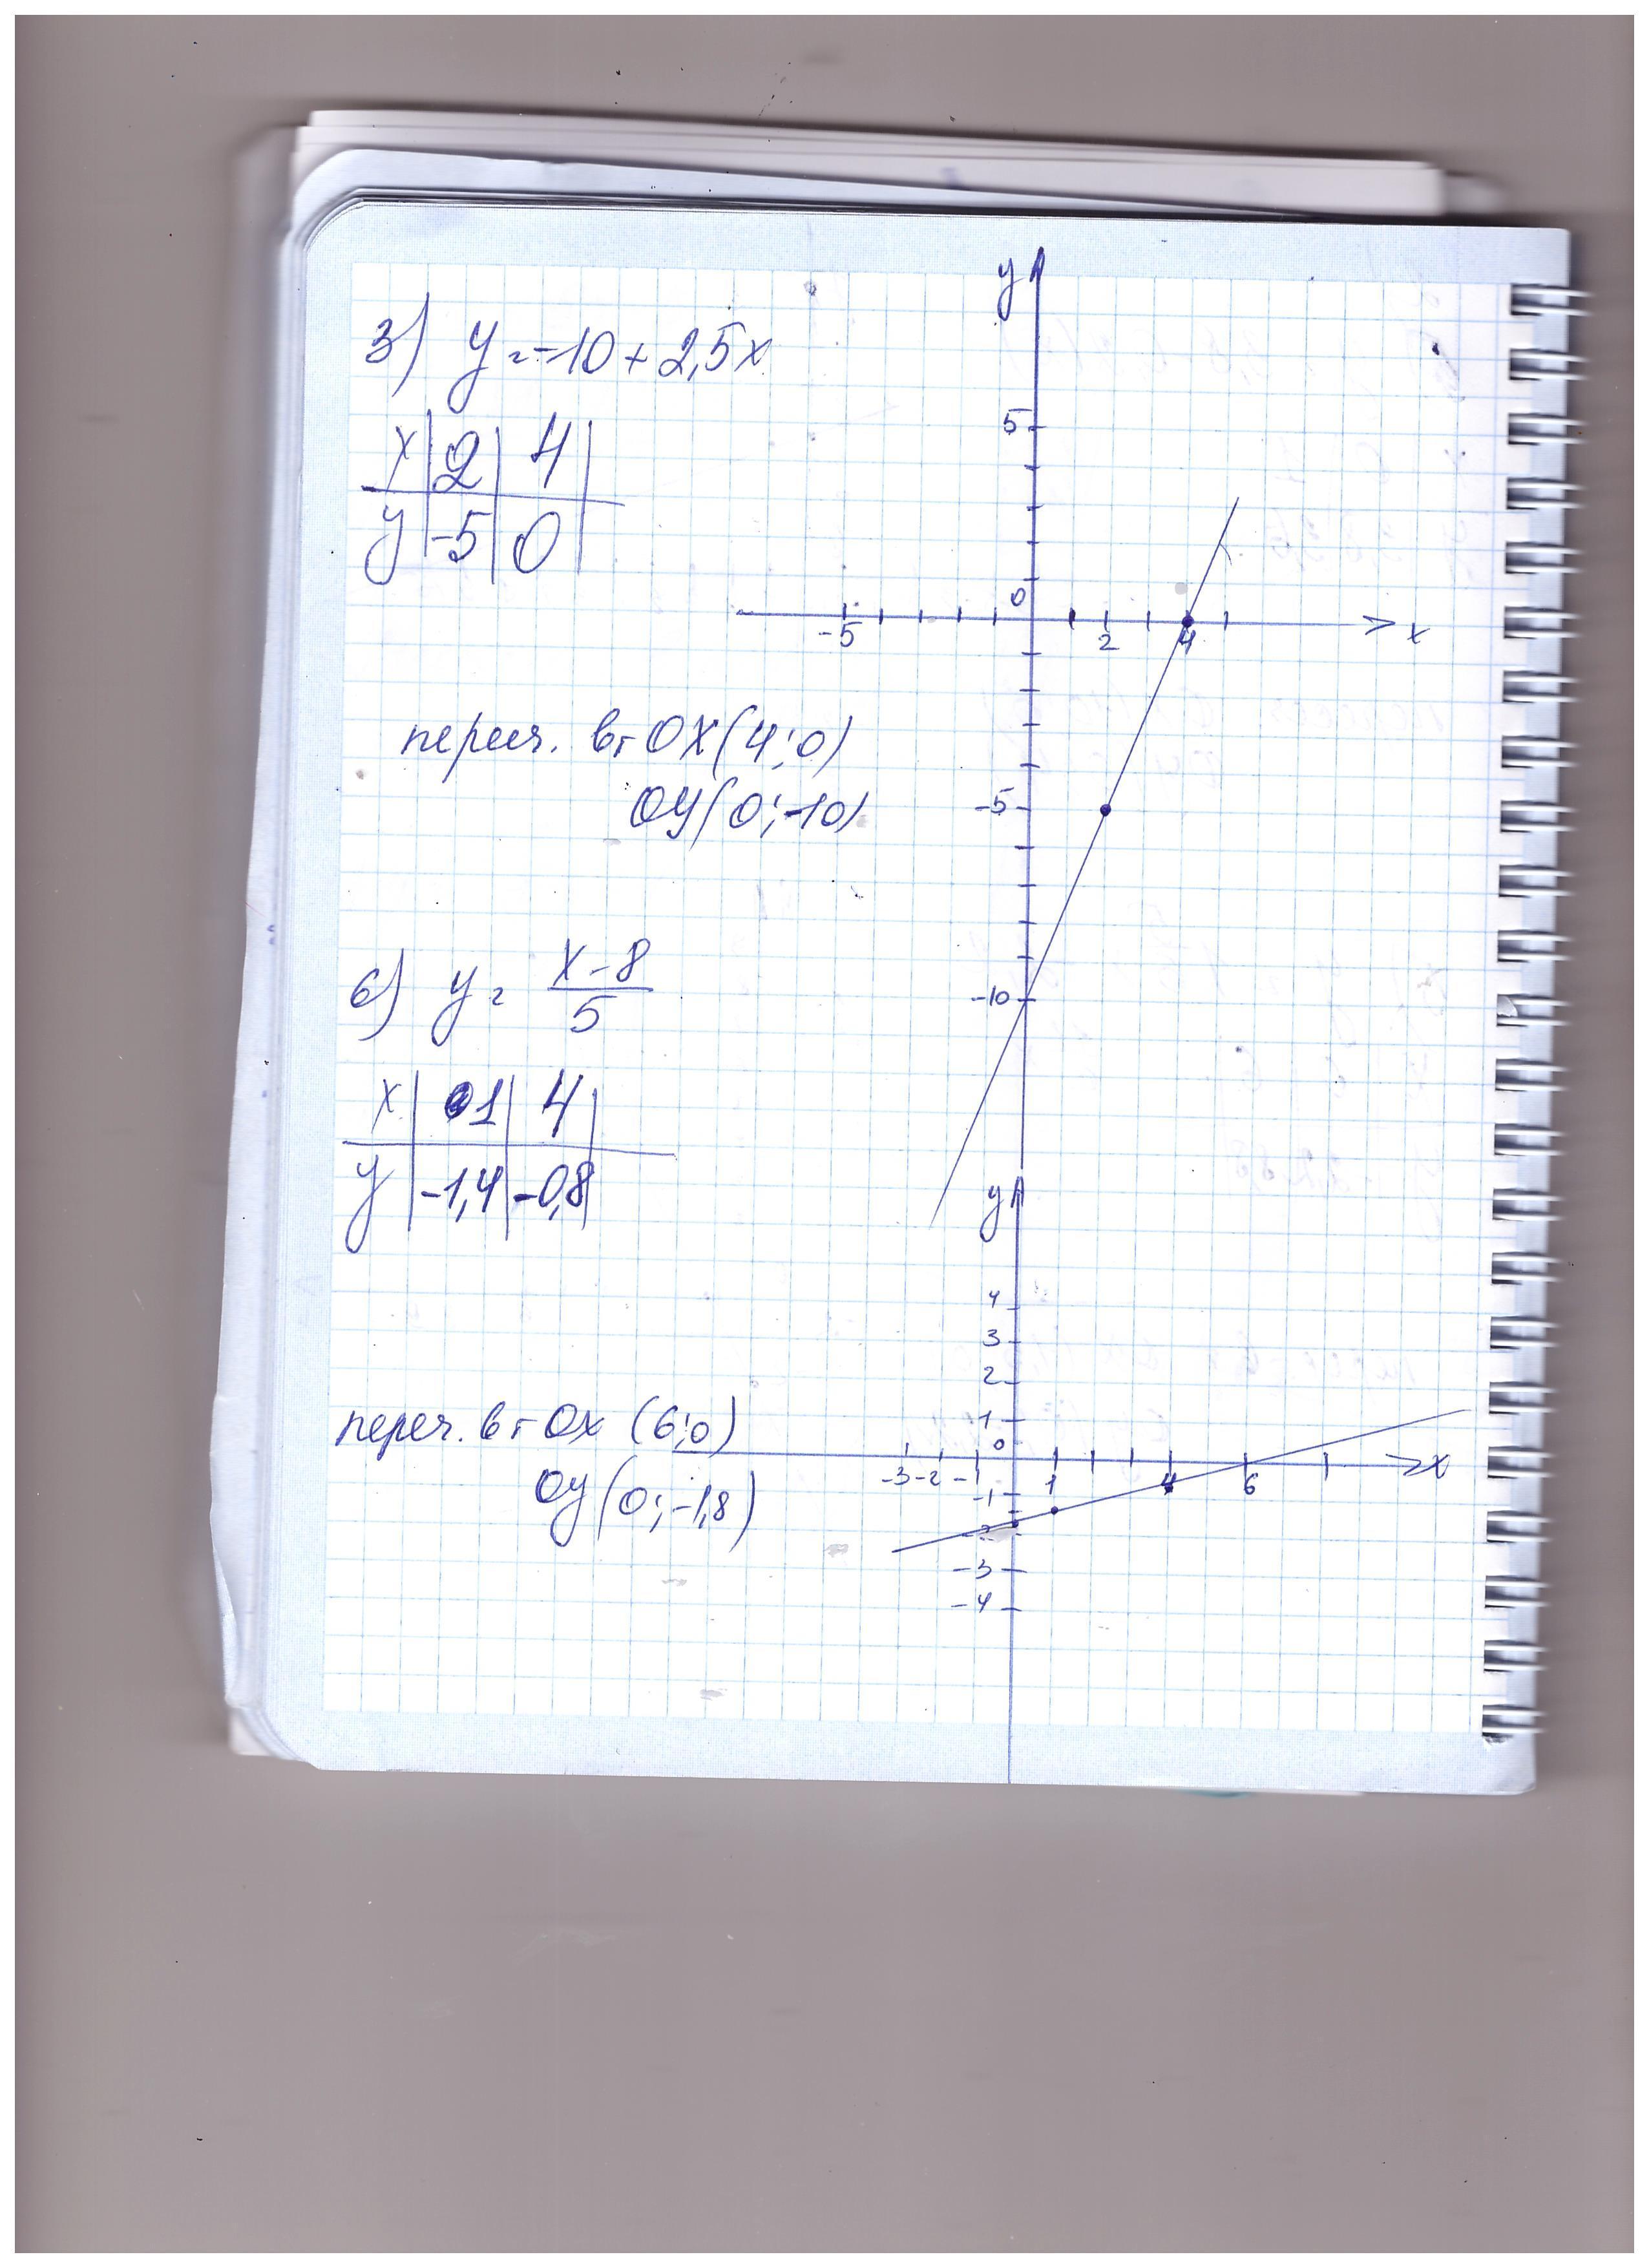 3) y=-10+2,5x
x 2 4
y -5 0
y
5
0
-5 2 4 x
-5
-10
перес. в т OX(4;0)
OY(0;-10)
6) y= x-8
5
x 1 4
y -1,4 -0,8
y
4
3
2
1
0
-3 -2 -1 1 4 6 x
-1
-2
-3
-4
переч. в т Ox (6;0)
Oy(0;-1,8)